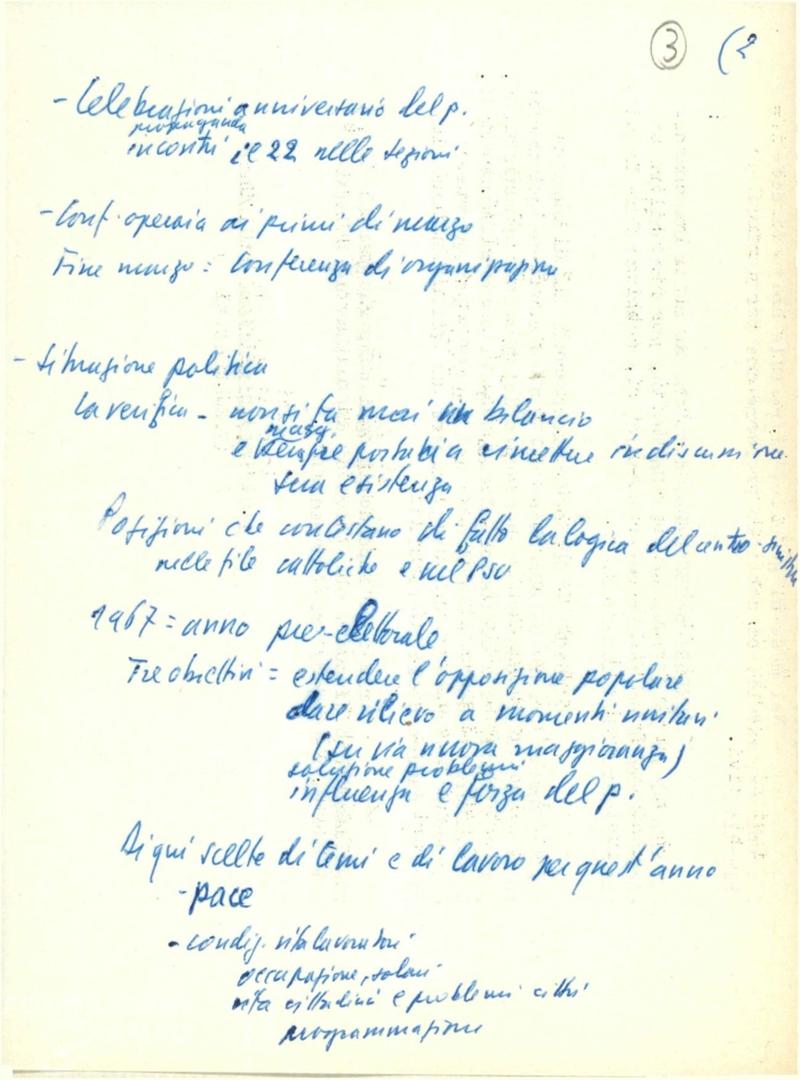 3 (2
- Celebrazioni anniversario del p.
propaganda
incontri il 22 nelle sezioni
- Conf. operaia ai primi di marzo
Fine marzo: Conferenza di organizzazione
- Situazione politica
La verifica - non si fa mai un bilancio
magg.
e sempre portata a rimettere in discussione
sua esistenza
Posizioni che contestano di fatto la logica del centro-sinistra
nelle file cattoliche e nel PSU
1967 = anno pre-elettorale
Tre obiettivi = estendere l'opposizione popolare
dare rilievo a momenti unitari
(su via nuova maggioranza)
soluzione problemi
influenza e forza del p.
Di qui scelte di temi e di lavoro per quest'anno
- pace
- condiz. vita lavoratori
occupazione, salari
vita cittadini e problemi città
programmazione